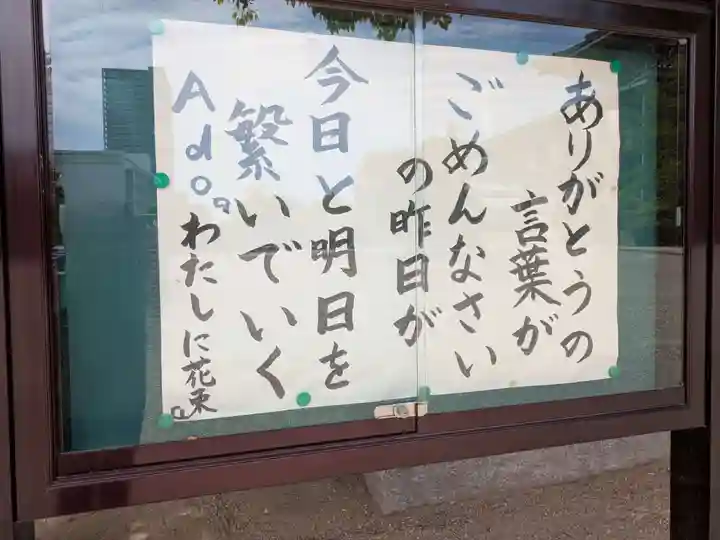 ありがとうの
言葉が
ごめんなさい
の昨日が
今日と明日を
繋いでいく
Ado『わたしに花束』